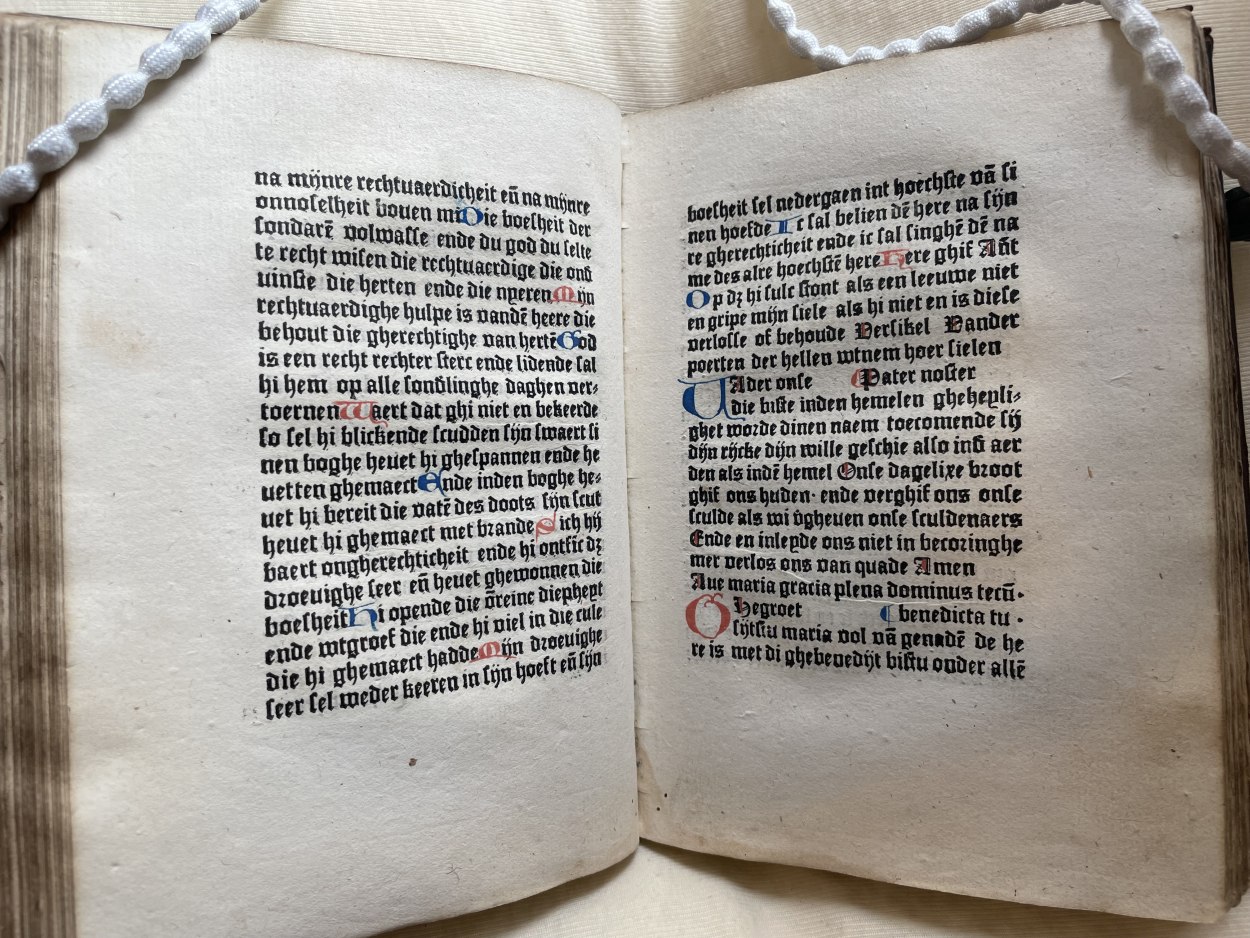 na mijnre rechtuaerdicheit eñ na mijnre
onnoselheit bouen mi Die boesheit der
sondarē volwasse ende du god du selte
te recht wisen die rechtuaerdige die ons
uinste die herten ende die nyeren Mijn
rechtuaerdighe hulpe is vandē heere die
behout die gherechtighe van hertē God
is een recht rechter sterc ende lidende sal
hi hem op alle sonblinghe daghen ver⸗
toernen Waert dat ghi niet en bekeerde
so sel hi blickende scudden sijn swaert si
nen boghe heuet hi ghespannen ende he
uetten ghemaect Ende inden boghe he⸗
uet hi bereit die vatē des doots sijn scut
heuet hi ghemaect met brande Sich hij
baert ongherechticheit ende hi ontfic dꝫ
droeuighe seer eñ heuet ghewonnen die
boesheit Hi opende die ōreine diepheyt
ende wtgroef die ende hi viel in die cule
die hi ghemaect hadde Mijn droeuighe
seer sel weder keeren in sijn hoeft eñ sijn
boesheit sel nedergaen int hoechste vā si
nen hoefde Ic sal belien dē here na sijn
re gherechticheit ende ic sal singhē dē na
me des alre hoechstē here Here ghif Añt
Op dꝫ hi sulc stont als een leeuwe niet
en gripe mijn siele als hi niet en is diese
verlosse of behoude Versikel Vander
poerten der hellen wtnem hoer sielen
VAder onse Pater noster
die biste inden hemelen gheheyli⸗
ghet worde dinen naem toecomende sij
dijn rijcke dijn wille geschie also ins aer
den als indē hemel Onse dagelixe broot
ghif ons huden· ende verghif ons onse
sculde als wi v̄gheuen onse sculdenaers
Ende en inleyde ons niet in becoringhe
mer verlos ons van quade Amen
Aue maria gracia plena dominus tecū·
GHegroet ¶ benedicta tu ·
sijtstu maria vol vā genadē de he
re is met di ghebenedijt bistu onder allē